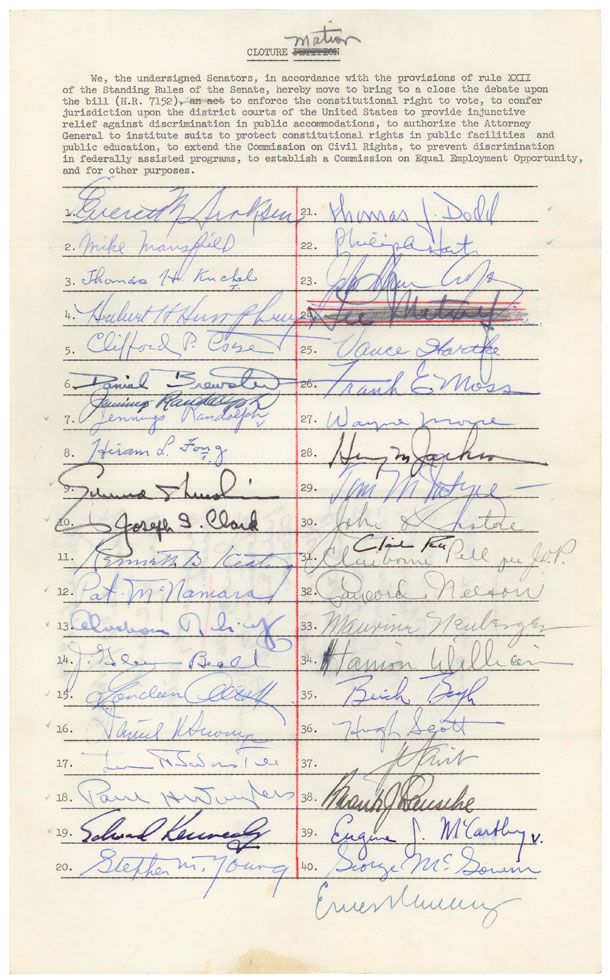 Motion
CLOTURE PETITION
We, the undersigned Senators, in accordance with the provisions of rule XXII
of the Standing Rules of the Senate, hereby move to bring to a close the debate upon
the bill (H.R. 7152), an act to enforce the constitutional right to vote, to confer
jurisdiction upon the district courts of the United States to provide injunctive
relief against discrimination in public accommodations, to authorize the Attorney
General to institute suits to protect constitutional rights in public facilities and
public education, to extend the Commission on Civil Rights, to prevent discrimination
in federally assisted programs, to establish a Commission on Equal Employment Opportunity,
and for other purposes.
1. Everett M Dirksen
2. Mike Mansfield
3. Thomas H Kuchel
4. Hubert H Humphrey
5. Clifford P. Case
6. Daniel Brewster
Jennings Randolph
7. Jennings Randolph
8. Hiram L. Fong
9.
10. Joseph S. Clark
11. Kenneth B Keating
12. Pat McNamara
13.
14. J. Glenn Beall
15. Gordon Allott
16. Daniel K Inouye
17.
18. Paul H Douglas
19. Edward Kennedy
20. Stephen M. Young
21. Thomas J. Dodd
22. Philip A Hart
23.
24. Lee Metcalf
25. Vance Hartke
26. Frank E Moss
27. Wayne Morse
28. Henry M Jackson
29. Tom McIntyre
30. John O Pastore
31. Claiborne Pell per
32. Gaylord Nelson
33. Maurine Neuberger
34. Harrison Williams
35. Birch Bayh
36. Hugh Scott
37.
38. Frank J Lausche
39. Eugene J. McCarthy
40. George McGovern